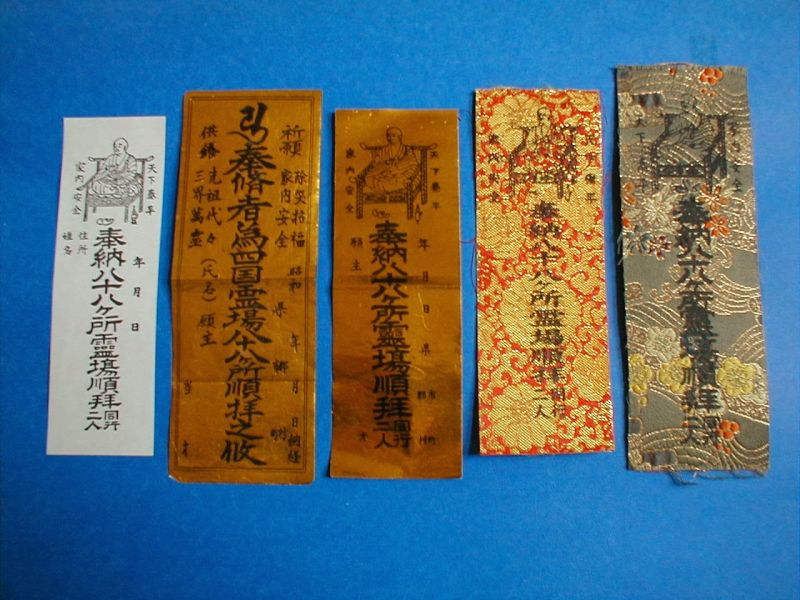 天下泰平
家内安全
年月日
奉納八十八ヶ所靈場順拝同行二人
住所
姓名
祈願
除災招福
家内安全
昭和 年 月 日
県 郷
奉脩者為四国霊場八十八所順拝之攸
供養
先祖代々
三界萬霊
(氏名)願主
当 才
天下泰平
家内安全
年月日県
市町
郡村
奉納八十八ヶ所靈場順拜同行二人
願主
才
家内安全
奉納八十八ヶ所靈場順拝同行二人
天下泰平
奉納八十八ヶ所靈場順拜同行二人